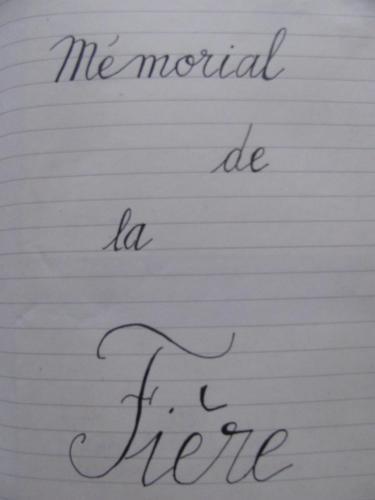 Mémorial
de
la
Fière